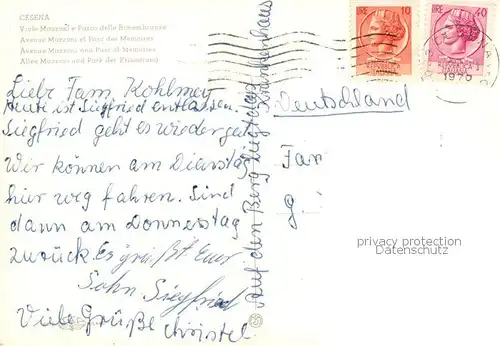 CESENA
Viale Mazzoni e Parco delle Rimembranze
Avenue Mazzoni et Parc des Memoires
Avenue Mazzoni and Parc of Memories
Allee Mazzoni und Park der
Liebe Fam. Kohlmey
Heute ist Siegfried entlassen.
Siegfried geht es wieder gut
Wir können am Dienstag
hier weg fahren. Sind
dann am Donnestag
zurück. Es grüßt Euer
Sohn Siegfried
Viele Grüße Christel.
Auf den Berg liegt das
Krankenhaus
LIRE 10
LIRE 40
1970
Deutschland
Fam
privacy protection
Datenschutz